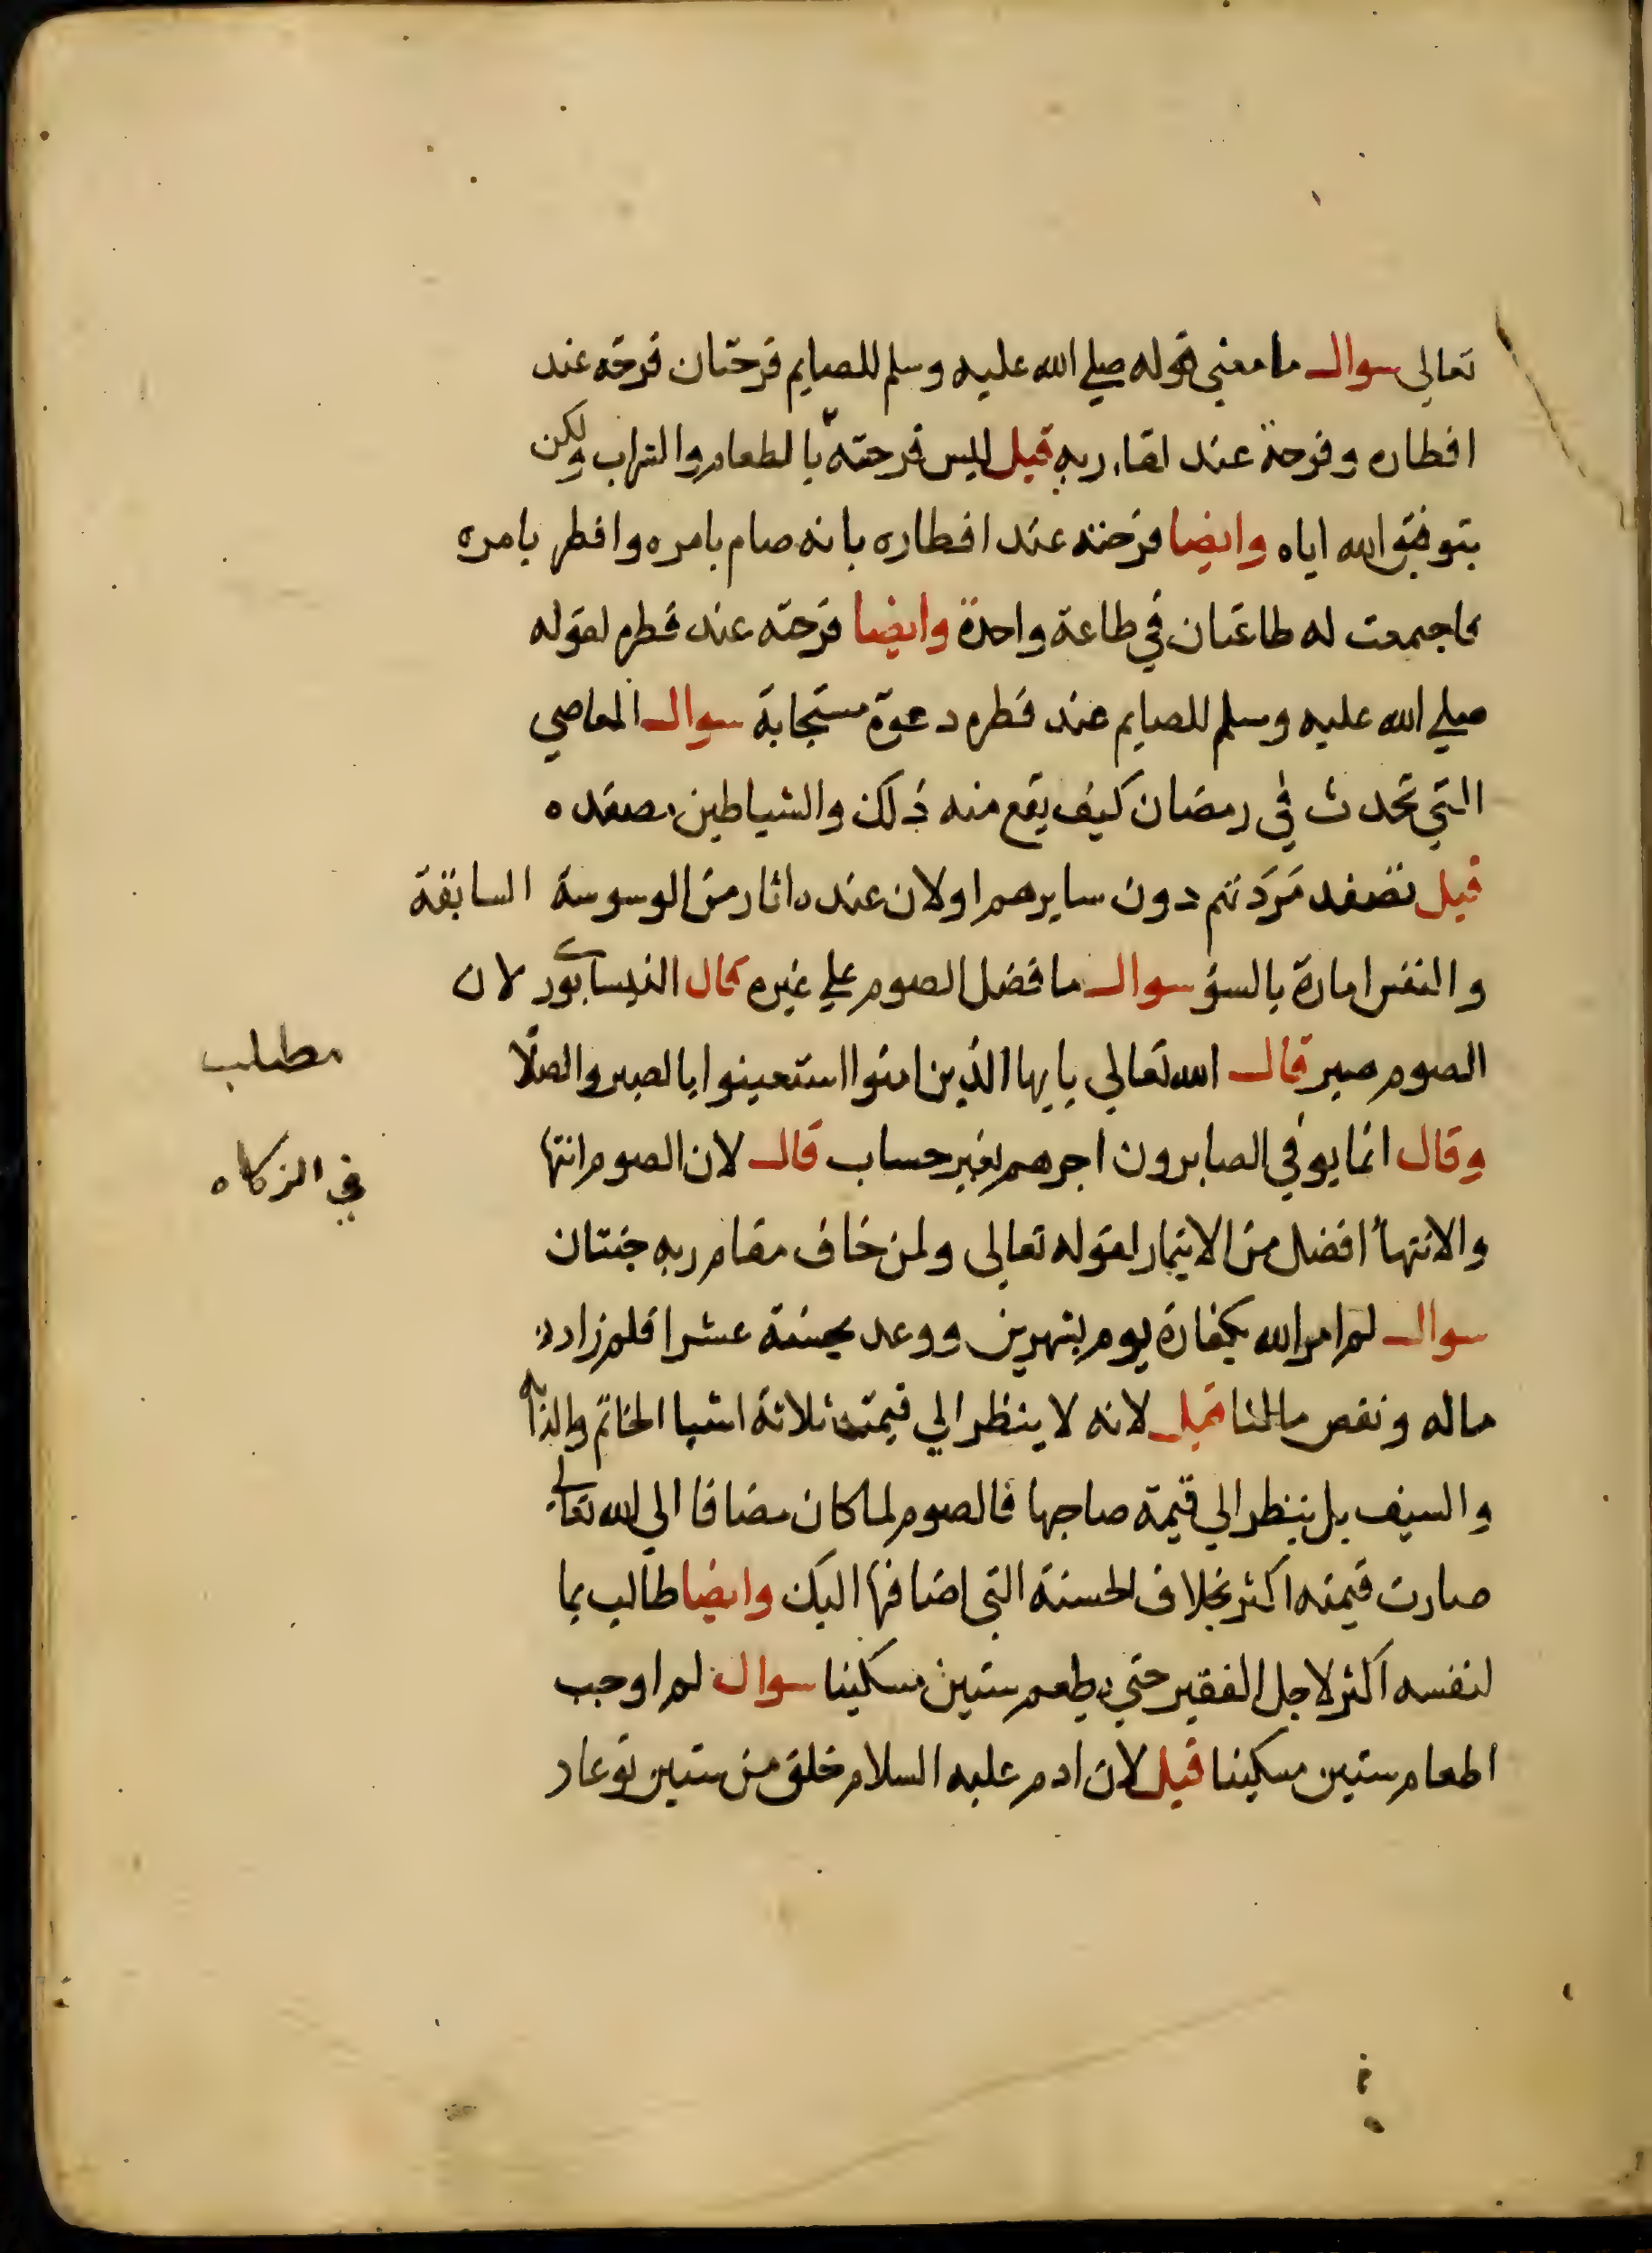 تعالى سوال ما معني قوله صلي الله عليه وسلم للصايم فرحتان فرحة عند
افطاره وفرحة عند لقاء ربه قيل ليس فرحته بالطعام والشراب ولكن
بتوفيق الله اياه وايضا فرحته عند افطاره بانه صام بامره وافطر بامره
فاجمعت له طاعتان في طاعة واحدة وايضا فرحته عند فطره لقوله
صلي الله عليه وسلم للصايم عند فطره دعوة مستجابة سوال المعاصي
التي تحدث في رمضان كيف يقع منه ذلك والشياطين مصفده
قيل تصفد مردتهم دون سايرهم او لان عنده اثار من الوسوسة السابقة
والنفس امارة بالسؤ سوال ما فضل الصوم علي غيره قال النيسابوري لان
الصوم صبر قال الله تعالي يايها الذين امنوا استعينوا بالصبر والصلا
وقال انما يوفي الصابرون اجرهم بغير حساب قال لان الصوم انتها
والانتها افضل من الايتمار لقوله تعالى ولمن خاف مقام ربه جنتان
سوال لم امر الله بكفارة يوم بشهرين ووعد بحسنة عشرا فلم زاد
ماله ونقص مالنا قيل لانه لا ينظر الي قيمت ثلاثة اشيا الخاتم والدابه
والسيف بل ينظر الي قيمة صاحبها فالصوم لما كان مضافا الي الله تعالي
صارت قيمته اكثر بخلاف الحسنة التي اضافها اليك وايضا طالب بما
لنفسه اكثر لاجل الفقير حتي يطعم ستين مسكينا سوال لم اوجب
اطعام ستين مسكينا قيل لان ادم عليه السلام خلق من ستين نوعا ر
مطلب
في الزكاه